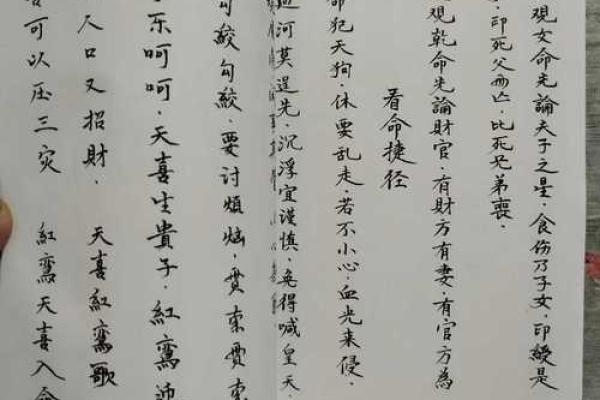 观女命先論夫子之星.食伤乃子女.印綬是
.印死父母亡.比死兄弟喪.
观乾命先論财官.有财方有妻.有官方為
看命捷径
命犯天狗.休要乱走.若不小心.血光来侵.
过河莫逞先.沉浮宜谨慎.免得喊皇天.
勾絞勾絞.要讨烦恼.賣東賣東
乐呵呵.天喜生貴子.紅鸾沛
人口又招财. 天喜紅鸾歌
可以压三灾 紅鸾天喜入命